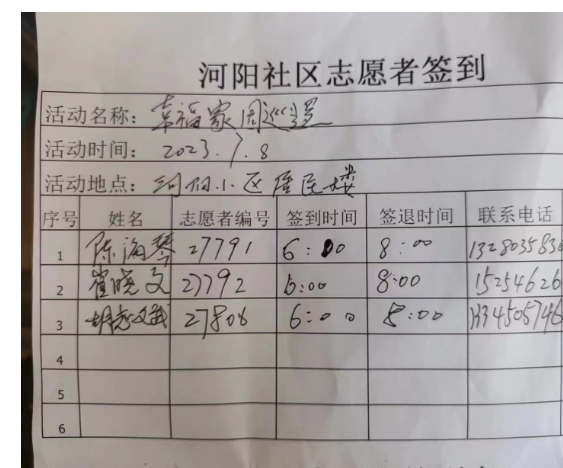 河阳社区志愿者签到
活动名称：幸福家园巡逻
活动时间：2023.7.8
活动地点：河阳小区居民楼
序号 姓名 志愿者编号 签到时间 签退时间 联系电话
1 陈海琴 27791 6:00 8:00 1328035836
2 崔晓文 27792 6:00 8:00 15254626
3 27806 6:00 8:00
4
5
6